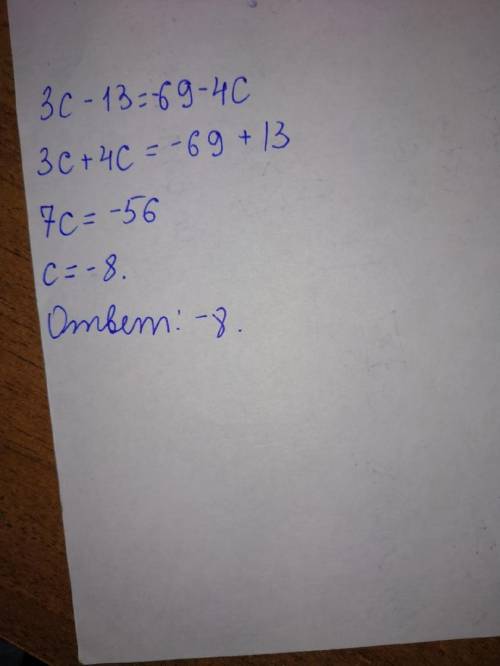 3c - 13 = -69 - 4c
3c + 4c = -69 + 13
7c = -56
c = -8.
Ответ: -8.